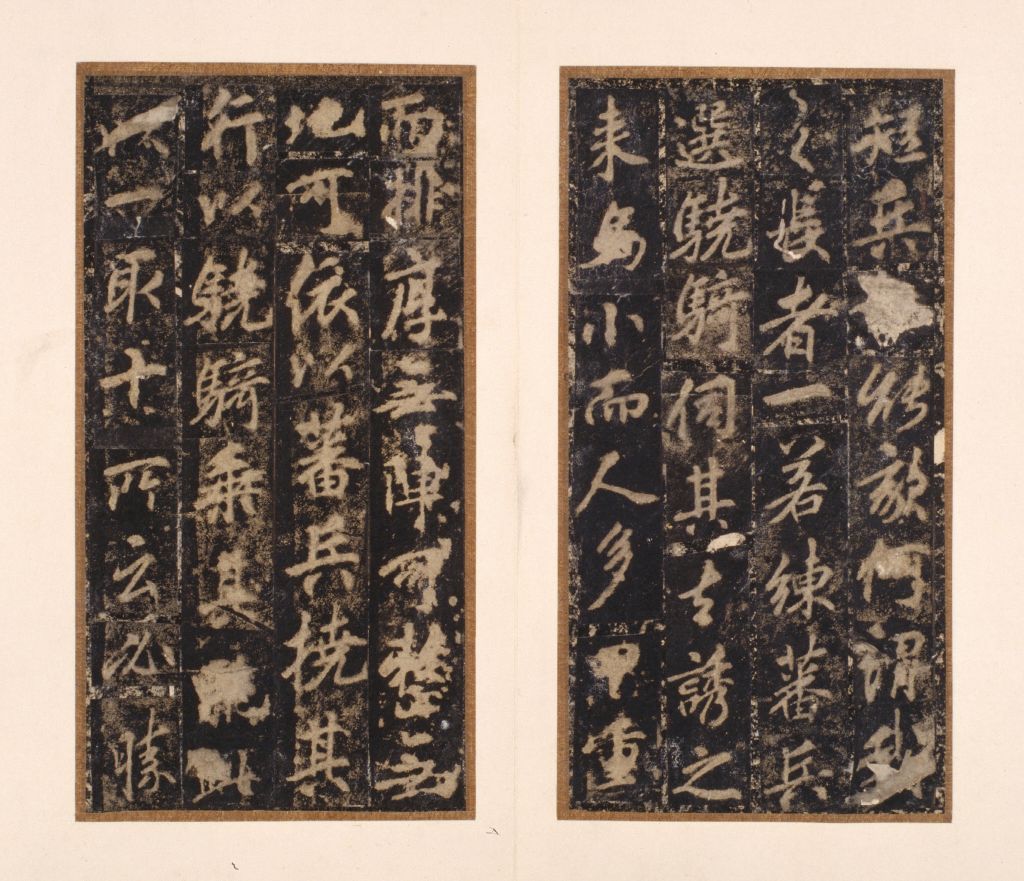 短兵能敵何謂我
之長者一若練蕃兵
選驍騎伺其去誘之
来為小而人多重
排厚無陣可整無
地可依以蕃兵撓其
行以驍騎乘其亂
以一取十所云必勝